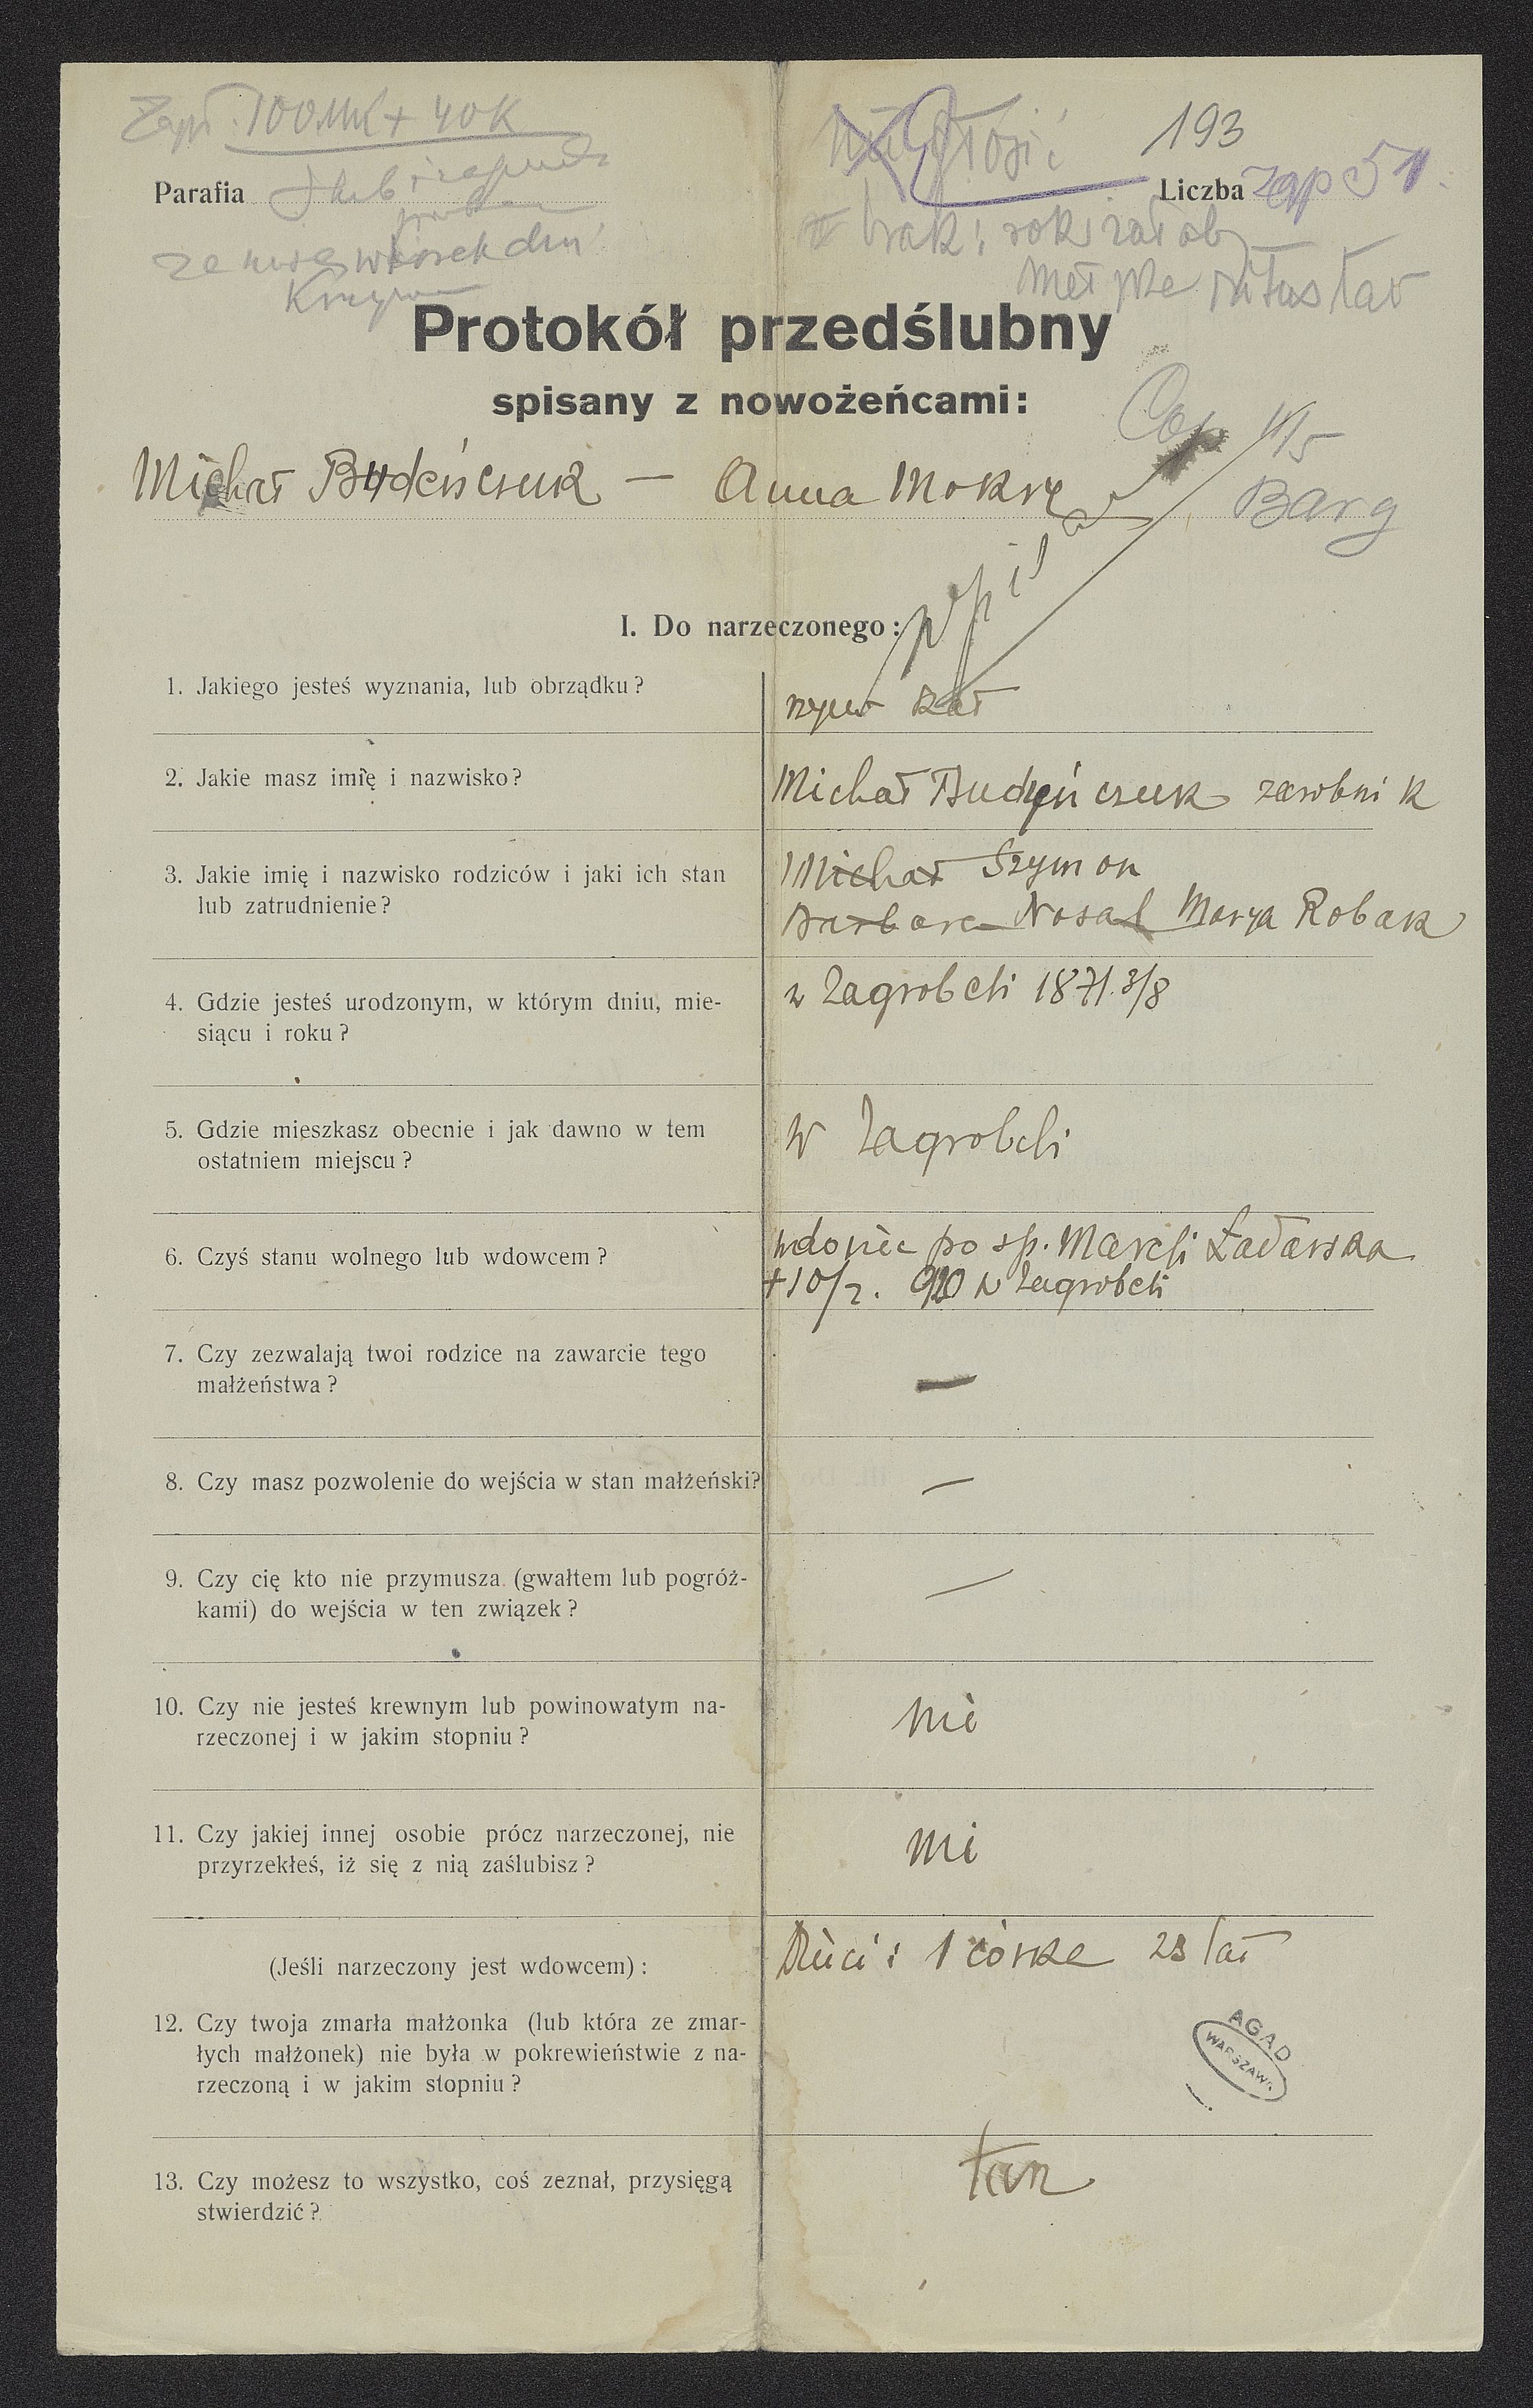 100 Mk + 40 K
193
Parafia
Liczba zap 51.
brak: rok żałoby
Protokół przedślubny
spisany z nowożeńcami:
Michał Budeńczuk — Anna Mokry
Barg
I. Do narzeczonego:
1. Jakiego jesteś wyznania, lub obrządku?
rzym kat
2. Jakie masz imię i nazwisko?
Michał Budyńczuk zarobnik
3. Jakie imię i nazwisko rodziców i jaki ich stan
lub zatrudnienie?
Michał Szymon
Barbara Nosal Marya Robak
4. Gdzie jesteś urodzonym, w którym dniu, mie-
siącu i roku?
w Zagrobeli 1871. 3/8
5. Gdzie mieszkasz obecnie i jak dawno w tem
ostatniem miejscu?
w Zagrobeli
6. Czyś stanu wolnego lub wdowcem?
wdowiec po sp. Maryi
+10/2. 920 w Zagrobeli
7. Czy zezwalają twoi rodzice na zawarcie tego
małżeństwa?
—
8. Czy masz pozwolenie do wejścia w stan małżeński?
—
9. Czy cię kto nie przymusza (gwałtem lub pogróż-
kami) do wejścia w ten związek?
—
10. Czy nie jesteś krewnym lub powinowatym na-
rzeczonej i w jakim stopniu?
nie
11. Czy jakiej innej osobie prócz narzeczonej, nie
przyrzekłeś, iż się z nią zaślubisz?
nie
(Jeśli narzeczony jest wdowcem):
Dzieci: 1 córka 23 lat
12. Czy twoja zmarła małżonka (lub która ze zmar-
łych małżonek) nie była w pokrewieństwie z na-
rzeczoną i w jakim stopniu?
AGAD
WARSZAWA
13. Czy możesz to wszystko, coś zeznał, przysięgą
stwierdzić?
tak